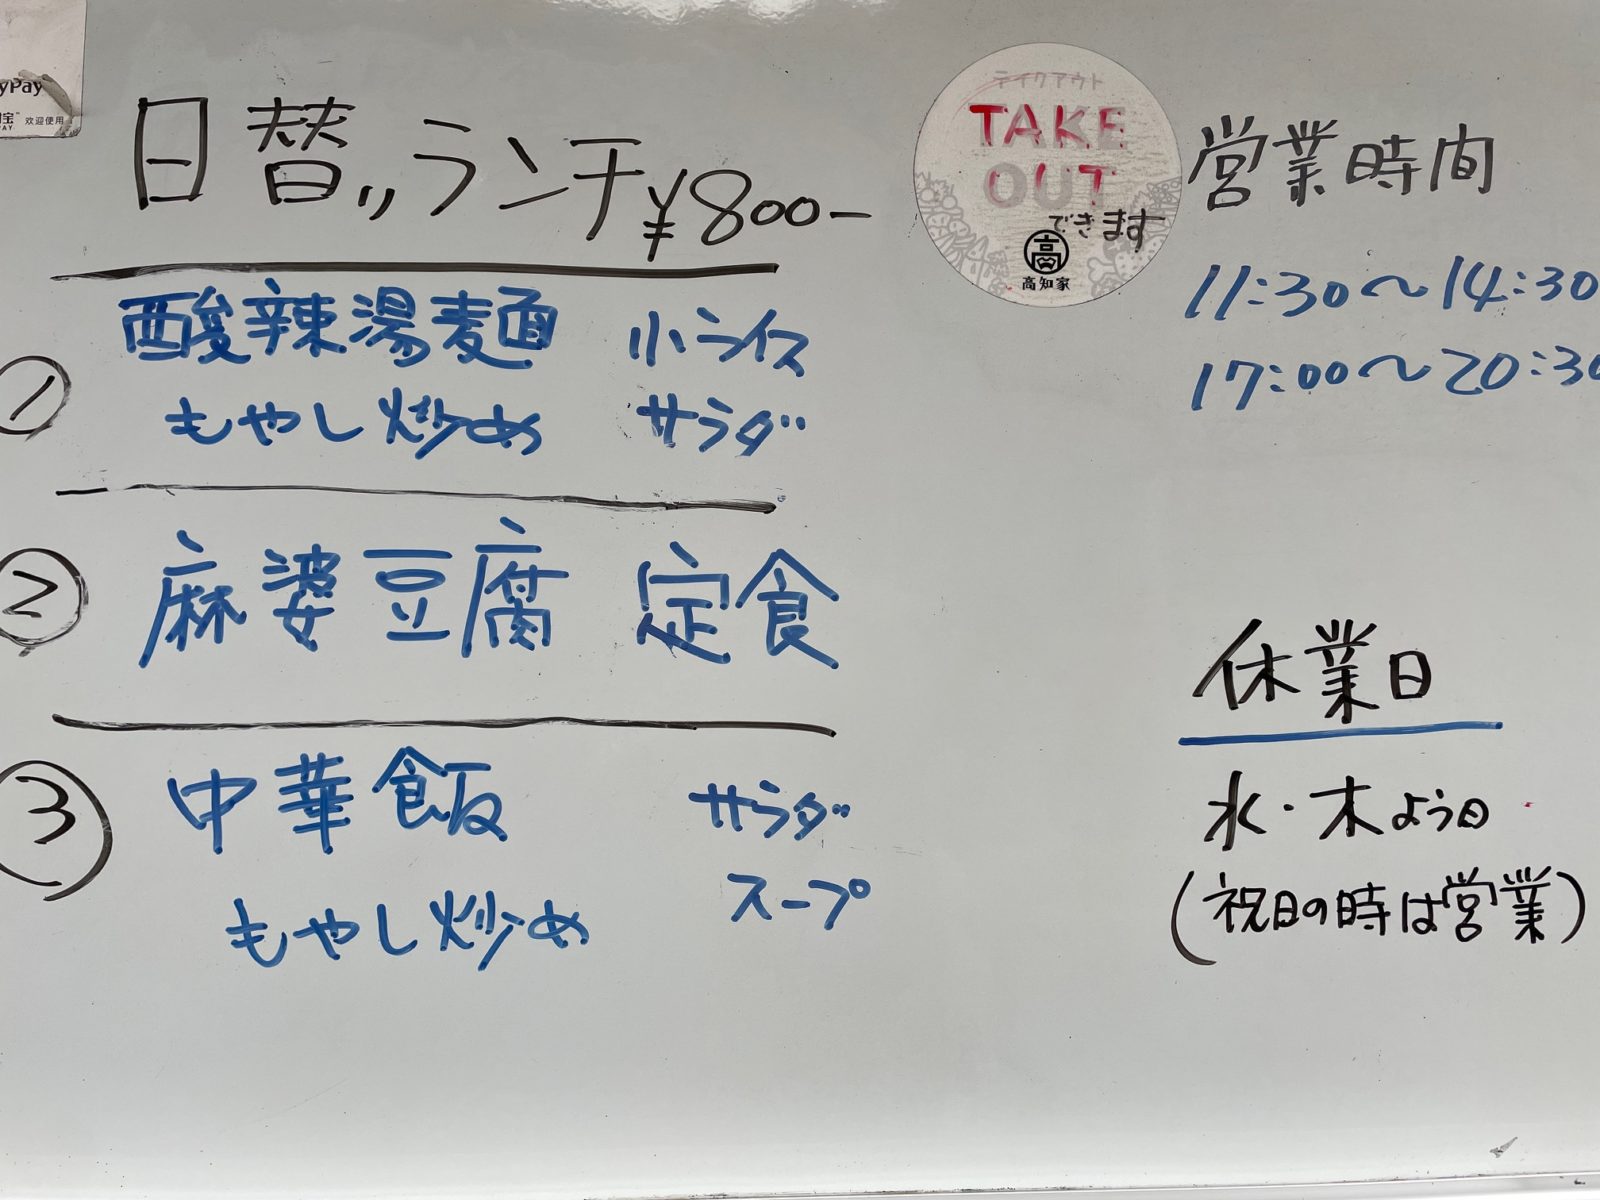 yPay
宝
PAY
欢迎使用
日替りランチ ¥800-
① 酸辣湯麺 小ライス
もやし炒め サラダ
② 麻婆豆腐 定食
③ 中華飯 サラダ
もやし炒め スープ
テイクアウト
TAKE
OUT
できます
高
高知家
営業時間
11:30〜14:30
17:00〜20:30
休業日
水・木よう日
(祝日の時は営業)